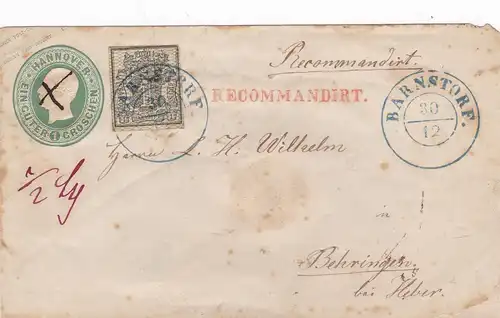 Recommandirt.
HANNOVER
EIN GUTER GROSCHEN
1
BARNSTORF.
30
RECOMMANDIRT.
BARNSTORF.
30
12
Herrn L. H. Wilhelm
in
Behringen
bei Heber.